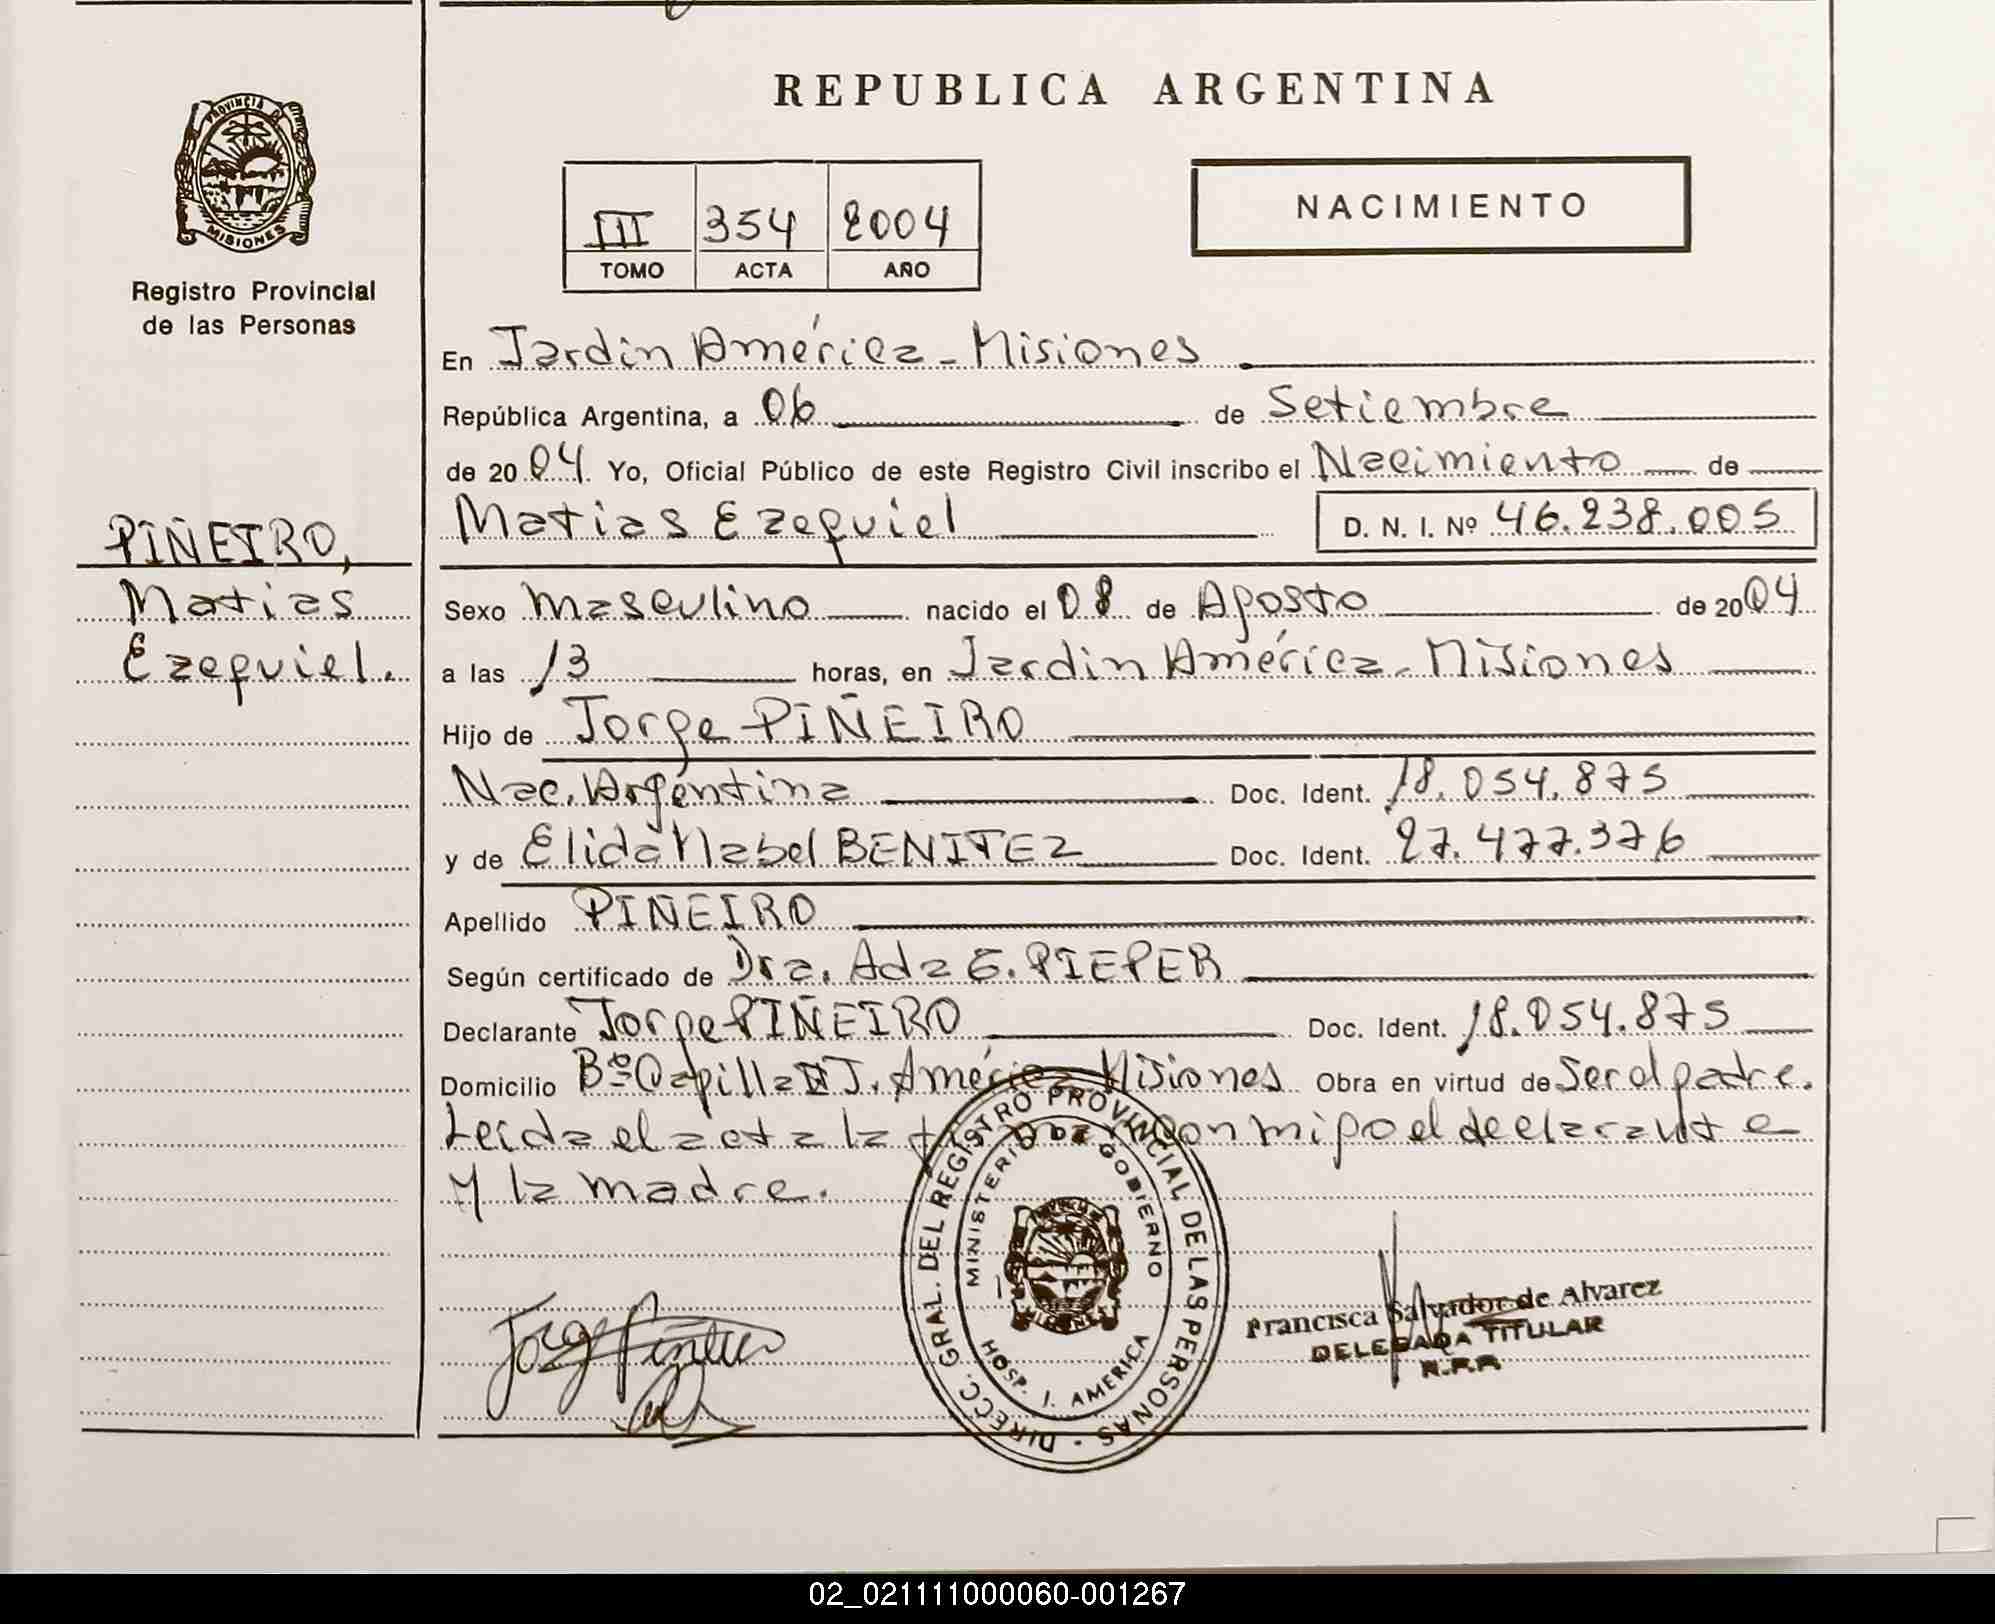 REPUBLICA ARGENTINA
PROVINCIA DE
MISIONES
Registro Provincial
de las Personas
III 354 2004
TOMO ACTA AÑO
NACIMIENTO
En Jardin América - Misiones
República Argentina, a 06 de Setiembre
de 2004 Yo, Oficial Público de este Registro Civil inscribo el Nacimiento de
Matias Ezequiel D. N. I. Nº 46.238.005
PIÑEIRO,
Matias
Ezequiel.
Sexo Masculino nacido el 08 de Agosto de 2004
a las 13 horas, en Jardin América - Misiones
Hijo de Jorge PIÑEIRO
Nac. Argentina Doc. Ident. 18.054.875
y de Elida Mabel BENITEZ Doc. Ident. 27.477.376
Apellido PIÑEIRO
Según certificado de Dra. Ada E. PIEPER
Declarante Jorge PIÑEIRO Doc. Ident. 18.054.875
Domicilio Bº Capilla J. América Misiones Obra en virtud de Ser el padre.
Leida el acta la con migo el declarante
y la madre.
DIRECC. GRAL. DEL REGISTRO PROVINCIAL DE LAS PERSONAS
MINISTERIO DE GOBIERNO
HOSP. J. AMERICA
Jorge Piñeiro
Francisca Salvador de Alvarez
DELEGADA TITULAR
R.P.P.
02_021111000060-001267